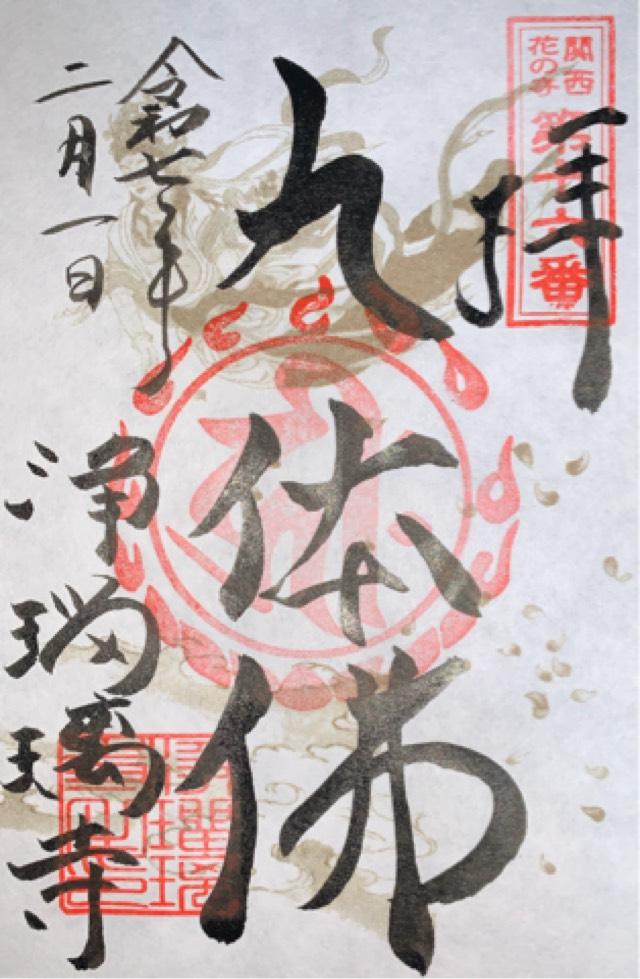 関西
花の寺
第十六番
拝
九体佛
令和七年
二月一日
浄瑠璃寺